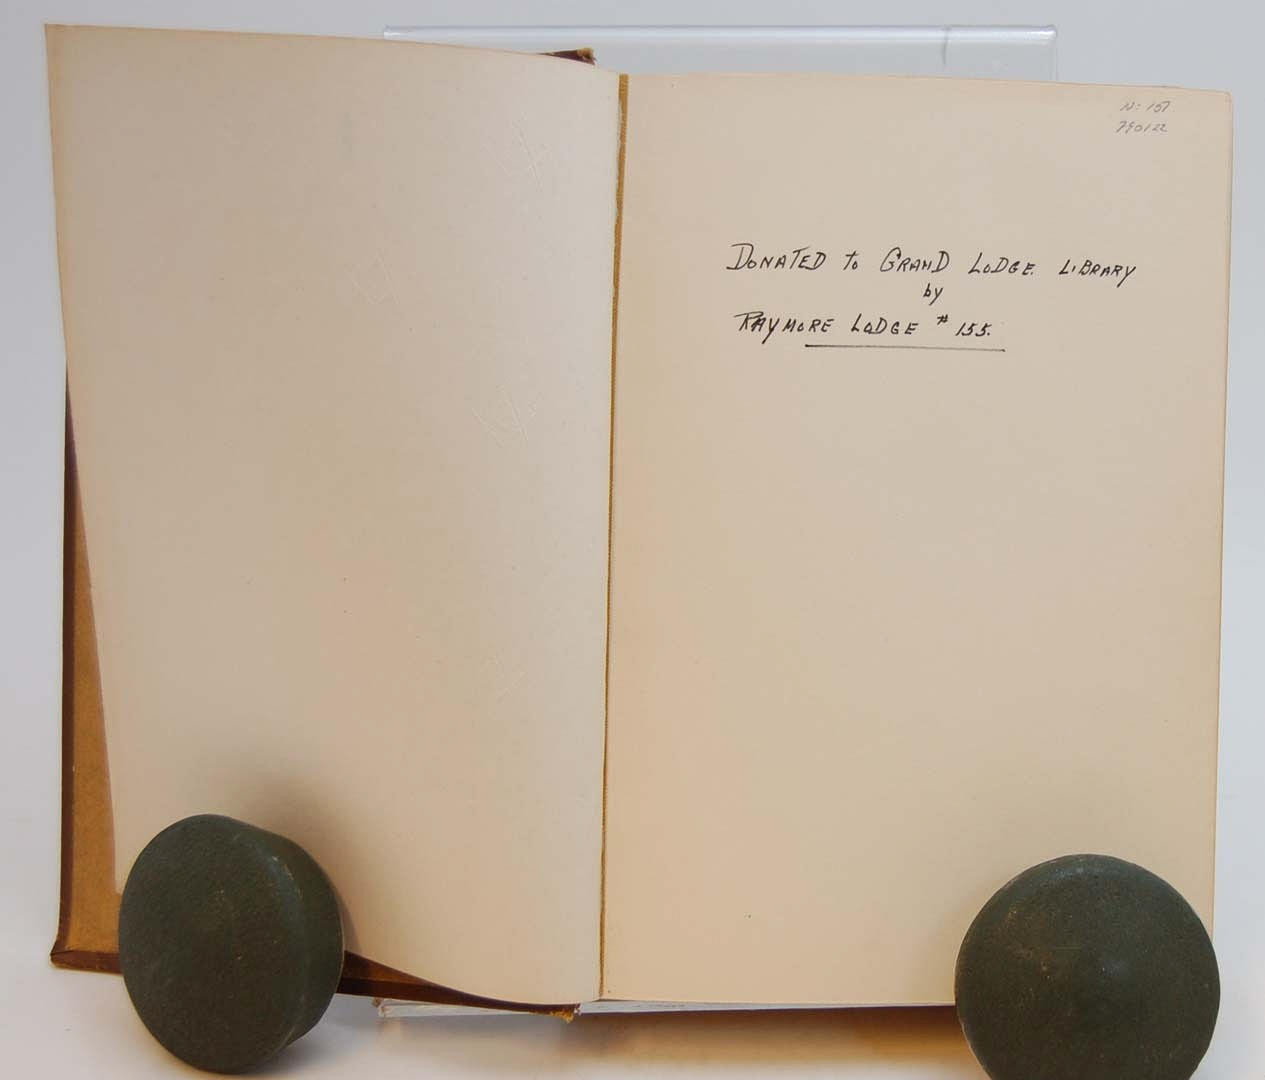 N: 157
790122
DONATED to GRAND LODGE LIBRARY
by
RAYMORE LODGE # 155.